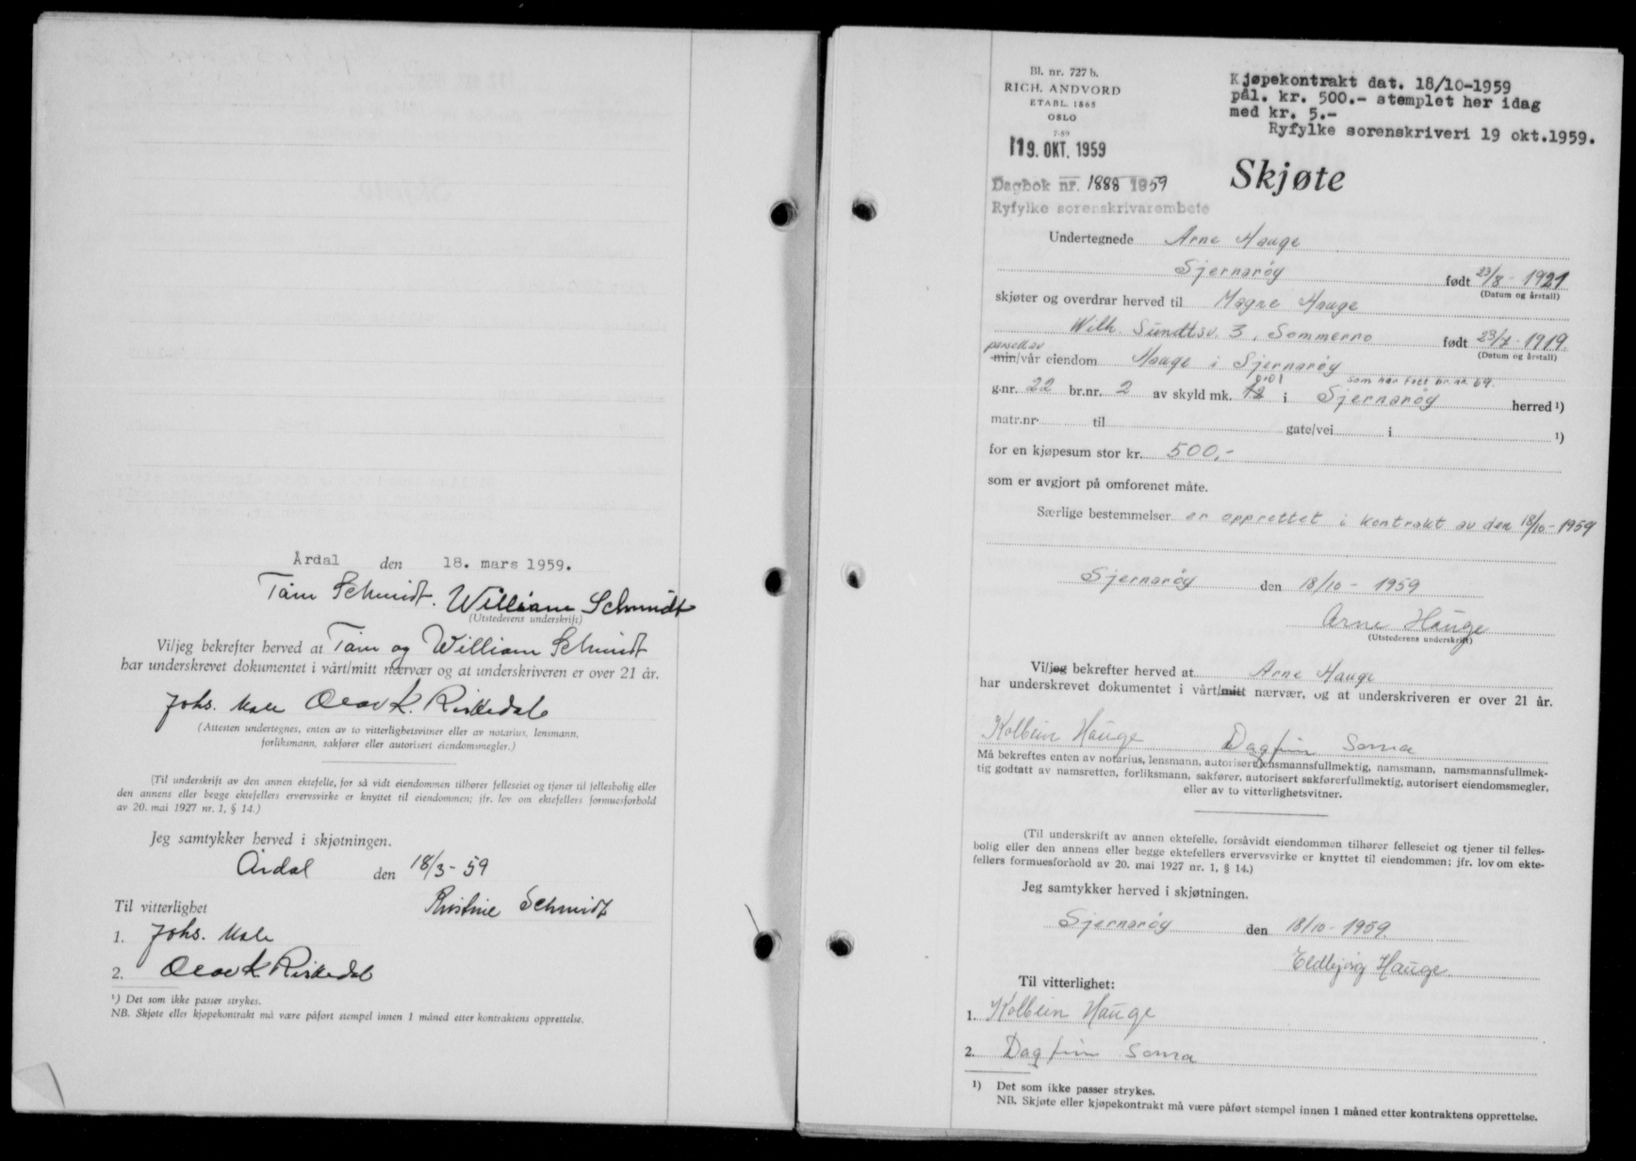 Årdal den 18. mars 1959.
Tám Schmidt. William Schmidt
(Utstederens underskrift)
Vi/jeg bekrefter herved at Tám og William Schmidt
har underskrevet dokumentet i vårt/mitt nærvær og at underskriveren er over 21 år.
Johs. Male Olav K. Riskedal
(Attesten undertegnes, enten av to vitterlighetsvitner eller av notarius, lensmann,
forliksmann, sakfører eller autorisert eiendomsmegler.)
(Til underskrift av den annen ektefelle, for så vidt eiendommen tilhører felleseiet og tjener til fellesbolig eller
den annens eller begge ektefellers ervervsvirke er knyttet til eiendommen; jfr. lov om ektefellers formuesforhold
av 20. mai 1927 nr. 1, § 14.)
Jeg samtykker herved i skjøtningen.
Årdal den 18/3-59
Kristine Schmidt
Til vitterlighet
1. Johs. Male
2. Olav K Riskedal
¹) Det som ikke passer strykes.
NB. Skjøte eller kjøpekontrakt må være påført stempel innen 1 måned etter kontraktens opprettelse.
Bl. nr. 727 b.
RICH. ANDVORD
ETABL. 1865
OSLO
7-59
19. OKT. 1959
Dagbok nr. 1888 1959
Ryfylke sorenskrivarembete
Kjøpekontrakt dat. 18/10-1959
pål. kr. 500.- stemplet her idag
med kr. 5.-
Ryfylke sorenskriveri 19 okt.1959.
Skjøte
Undertegnede Arne Hauge
Sjernarøy født 23/8 - 1921
(Datum og årstall)
skjøter og overdrar herved til Magne Hauge
Wilh. Sundtsv. 3, Sommerro født 23/7 - 1919.
(Datum og årstall)
parsell av
min/vår eiendom Hauge i Sjernarøy
0.01 som har fått br.nr. 69.
g.nr. 22 br.nr. 2 av skyld mk. i Sjernarøy herred ¹)
matr.nr. til gate/vei i ¹)
for en kjøpesum stor kr. 500,-
som er avgjort på omforenet måte.
Særlige bestemmelser er opprettet i kontrakt av den 18/10-1959
Sjernarøy den 18/10 - 1959
Arne Hauge
(Utstederens underskrift)
Vi/jeg bekrefter herved at Arne Hauge
har underskrevet dokumentet i vårt/mitt nærvær, og at underskriveren er over 21 år.
Kolbein Hauge Dagfinn Soma
Må bekreftes enten av notarius, lensmann, autorisert lensmannsfullmektig, namsmann, namsmannsfullmek-
tig godtatt av namsretten, forliksmann, sakfører, autorisert sakførerfullmektig, autorisert eiendomsmegler,
eller av to vitterlighetsvitner.
(Til underskrift av annen ektefelle, forsåvidt eiendommen tilhører felleseiet og tjener til felles-
bolig eller den annens eller begge ektefellers ervervsvirke er knyttet til eiendommen; jfr. lov om ekte-
fellers formuesforhold av 20. mai 1927 nr. 1, § 14.)
Jeg samtykker herved i skjøtningen.
Sjernarøy den 18/10 - 1959.
Eldbjørg Hauge
Til vitterlighet:
1. Kolbein Hauge
2. Dagfinn Soma
¹) Det som ikke passer strykes.
NB. Skjøte eller kjøpekontrakt må være påført stempel innen 1 måned etter kontraktens opprettelse.